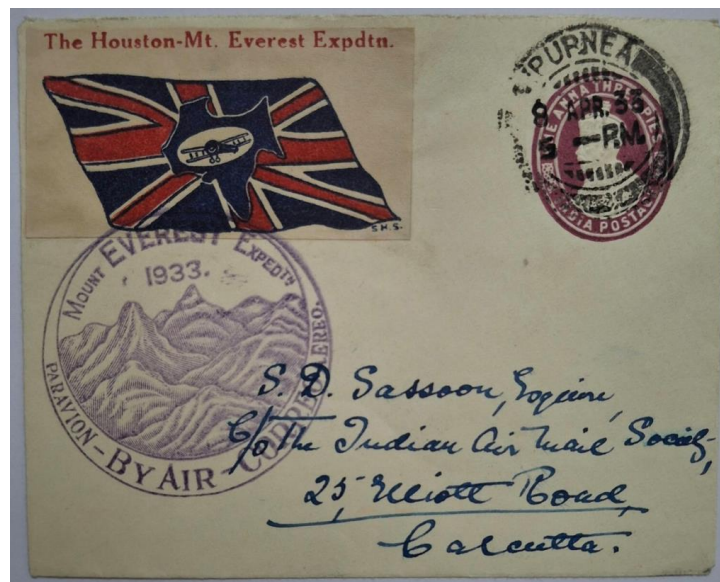 The Houston-Mt. Everest Expdtn.
S.H.S.
PURNEA
9 APR. 33
5 - PM
INDIA POSTAGE
MOUNT EVEREST EXPEDTN
1933.
PARAVION - BY AIR - CORREO AEREO.
S. D. Sassoon, Esquire,
C/o The Indian Air Mail Society,
25, Elliott Road,
Calcutta.